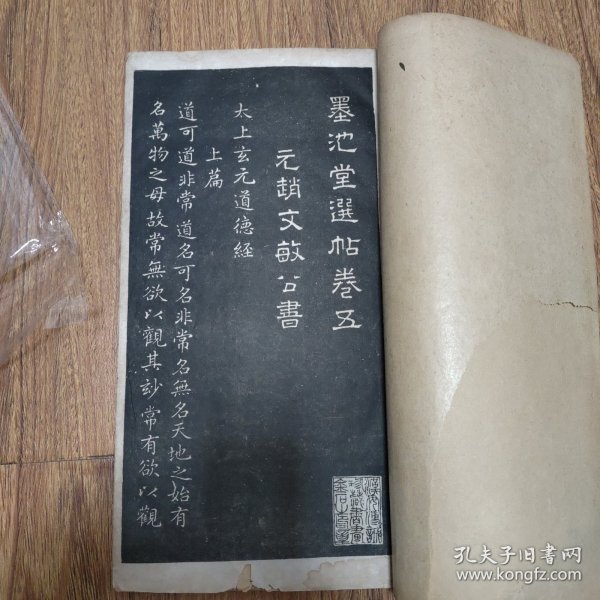 墨池堂選帖卷五
元趙文敏公書
太上玄元道德經
上篇
道可道非常道名可名非常名無名天地之始有
名萬物之母故常無欲以觀其玅常有欲以觀
孔夫子旧書网
www.kongfz.com